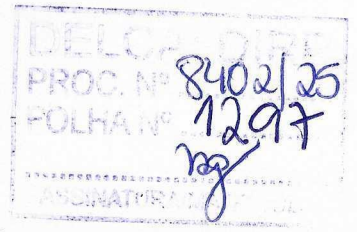 DELCA DIPE
PROC. Nº 8402/25
FOLHA Nº 1297
ASSINATURA